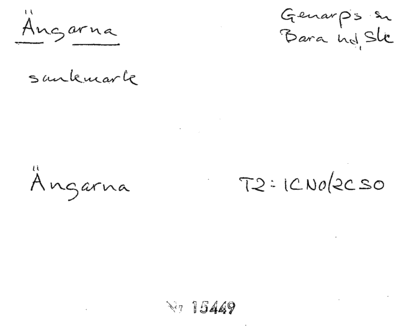 Ängarna
Genarp's sn
Bara hd, Sk
sankmark
Ängarna
T2: 1CNO/2CSO
No 15449